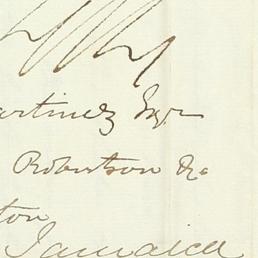 artinez Esqr
Robertson &c
ton
Jamaica